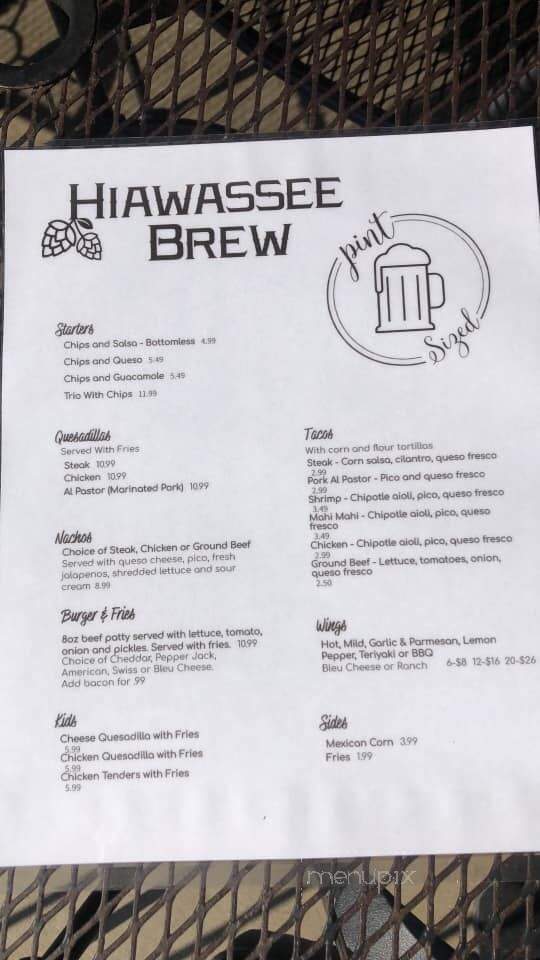 HIAWASSEE
BREW
pint
Sized
Starters
Chips and Salsa - Bottomless 4.99
Chips and Queso 5.49
Chips and Guacamole 5.49
Trio With Chips 11.99
Quesadillas
Served With Fries
Steak 10.99
Chicken 10.99
Al Pastor (Marinated Pork) 10.99
Nachos
Choice of Steak, Chicken or Ground Beef
Served with queso cheese, pico, fresh
jalapenos, shredded lettuce and sour
cream 8.99
Burger & Fries
8oz beef patty served with lettuce, tomato,
onion and pickles. Served with fries. 10.99
Choice of Cheddar, Pepper Jack,
American, Swiss or Bleu Cheese.
Add bacon for .99
Kids
Cheese Quesadilla with Fries
5.99
Chicken Quesadilla with Fries
5.99
Chicken Tenders with Fries
5.99
Tacos
With corn and flour tortillas
Steak - Corn salsa, cilantro, queso fresco
2.99
Pork Al Pastor - Pico and queso fresco
2.99
Shrimp - Chipotle aioli, pico, queso fresco
3.49
Mahi Mahi - Chipotle aioli, pico, queso
fresco
3.49
Chicken - Chipotle aioli, pico, queso fresco
2.99
Ground Beef - Lettuce, tomatoes, onion,
queso fresco
2.50
Wings
Hot, Mild, Garlic & Parmesan, Lemon
Pepper, Teriyaki or BBQ
Bleu Cheese or Ranch 6-$8 12-$16 20-$26
Sides
Mexican Corn 3.99
Fries 1.99
menupix